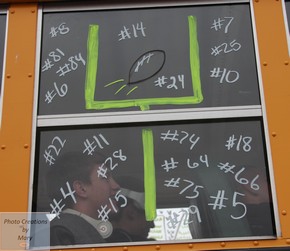 #8
#14
#7
#81
#84
#25
#6
#24
#10
#22
#11
#28
#4
#15
#74
#18
#64
#66
#75
#5
Photo Creations
by
Mary